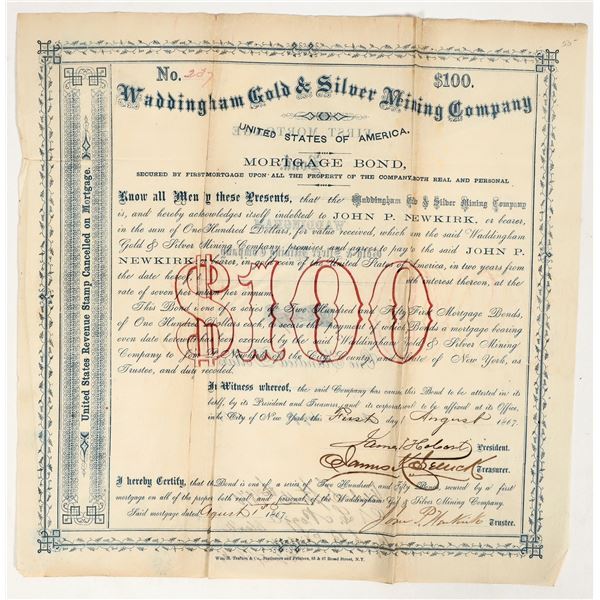 55-
No. 237
$100.
Waddingham Gold & Silver Mining Company
UNITED STATES OF AMERICA.
MORTGAGE BOND,
SECURED BY FIRST MORTGAGE UPON ALL THE PROPERTY OF THE COMPANY, BOTH REAL AND PERSONAL
Know all Men y these Presents, that the Waddingham G d & Silver Mining Company
is, and hereby acknowledges itself indebted to JOHN P. NEWKIRK, or bearer,
in the sum of One Hundred Dollars, for value received, which sum the said Waddingham
Gold & Silver Mining Company promises and agrees to pay the said JOHN P.
NEWKIRK bearer, in gold coin of the United States of America, in two years from
the date hereof, th interest thereon, at the
rate of seven per annum
This Bond is one of a series f Two Hundred and Fifty First Mortgage Bonds,
of One Hundred Dollars each, to secure the payment of which Bonds a mortgage bearing
even date herewith executed by the said Waddingham Gold & Silver Mining
Company to the City, county, and State of New York, as
Trustee, and duly recorded.
In Witness whereof, the said Company has cause this Bond to be attested in its
behalf, by its President and Treasurer, and its corporate to be affixed at its Office,
in the City of New York, this First day August 1867.
James Hobart President.
James Treasurer.
I hereby Certify, that this Bond is one of a series of Two Hundred and Fifty Bonds secured by a first
mortgage on all of the proper both real and personal, of the Waddingham Gol & Silver Mining Company.
Said mortgage dated August 1st 1867
John P. Newkirk Trustee.
$100
United States Revenue Stamp Cancelled on Mortgage.
Stationers and Printers, 45 & 47 Broad Street, N.Y.